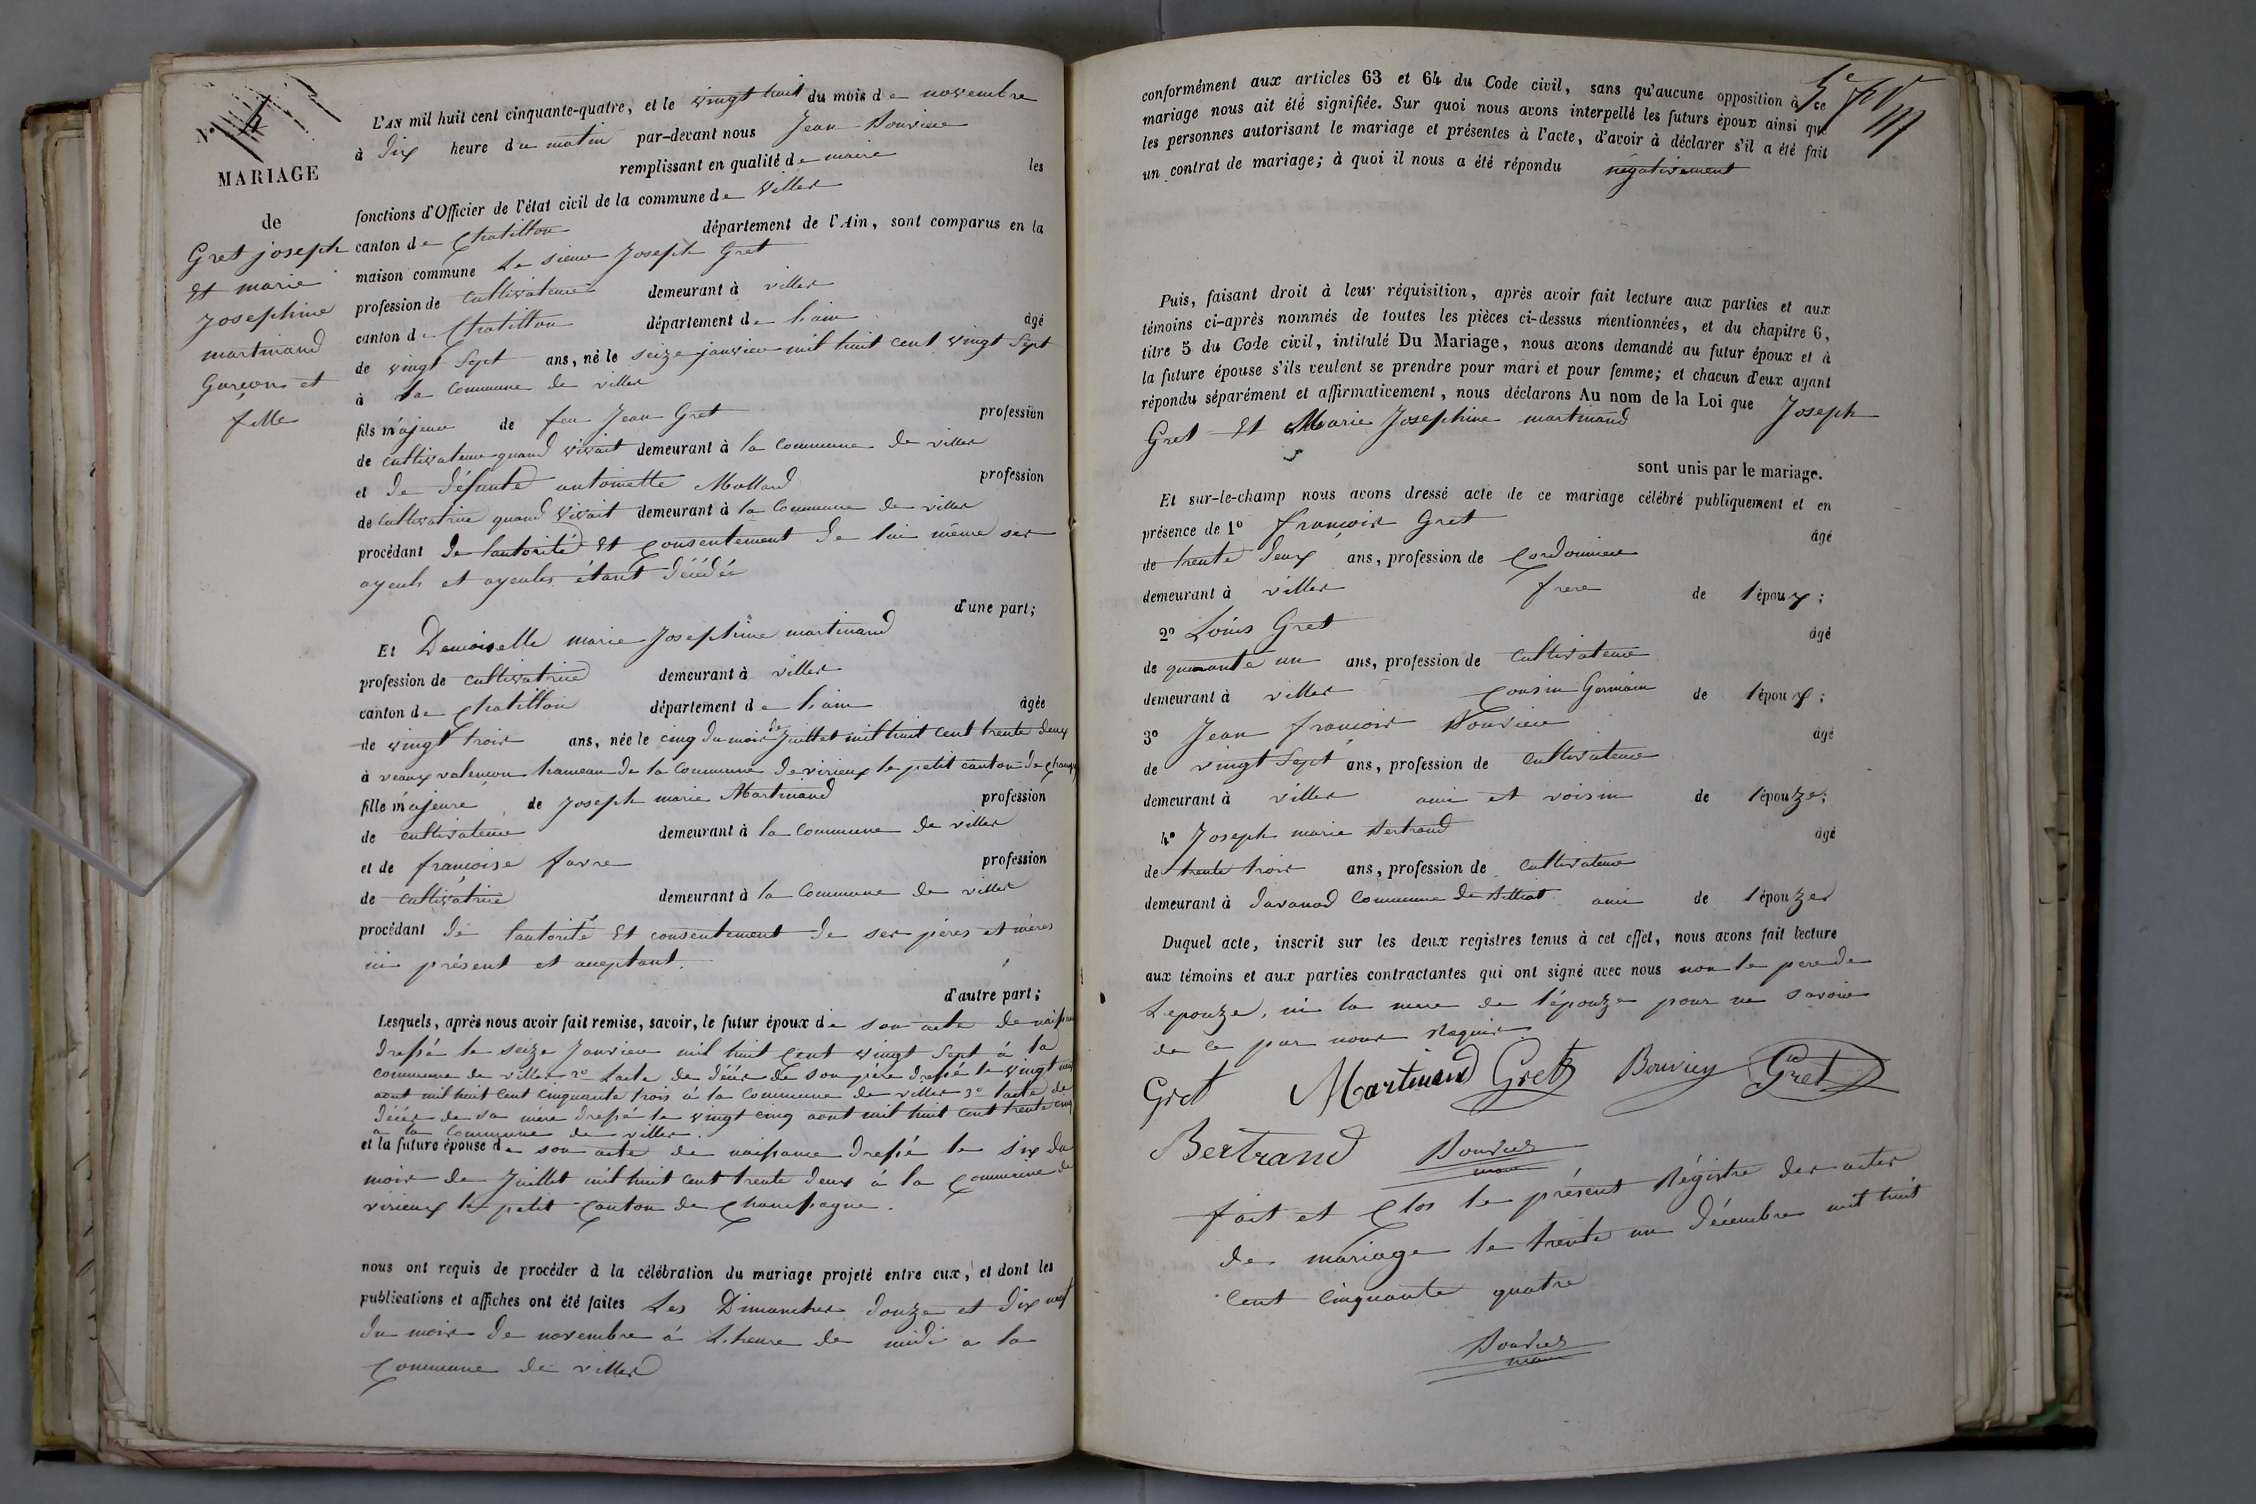 N° 4
MARIAGE
de
Gret joseph
Et marie
Josephine
martinand
Garçon et
fille
L'AN mil huil cent cinquante-quatre, et le vingt huit du mois de novembre
à dix heure du matin par-devant nous Jean Bouvier
remplissant en qualité de maire les
fonctions d'Officier de l'état civil de la commune de villes
canton de Chatillon département de l'Ain, sont comparus en la
maison commune Le sieur Joseph Gret
profession de cultivateur demeurant à villes
canton de Chatillon département de l'ain âgé
de vingt Sept ans, né le seize janvier mil huit cent vingt Sept
à la commune de villes
fils majeur de feu Jean Gret profession
de cultivateur quand vivait demeurant à la commune de villes
et de défunte antoinette Mollard profession
de cultivatrice quand vivait demeurant à la commune de villes
procédant de lautorité Et Consentement de lui même ses
ayeuls et ayeules étant décédés
d'une part;
Et Demoiselle marie Josephine martinand
profession de cultivatrice demeurant à villes
canton de Chatillon département de l'ain âgée
de vingt trois ans, née le cinq du mois de Juillet mil huit cent trente deux
à veaux valençon hameau de la commune de virieux le petit canton de
fille majeure de Joseph marie Martinand profession
de cultivateur demeurant à la commune de villes
et de françoise favre profession
de cultivatrice demeurant à la commune de villes
procédant de lautorité Et consentement de ses pères et mères
ici présent et acceptant.
d'autre part;
Lesquels, après nous avoir fait remise, savoir, le futur époux de son acte de
dressé le seize Janvier mil huit Cent vingt Sept à la
commune de villes 2° Lacte de décès de son père dressé le vingt
aout mil huit cent cinquante trois à la commune de villes 3° lacte de
décès de sa mère dressé le vingt cinq aout mil huit cent trente cinq
a la commune de villes.
et la future épouse de son acte de naissance dressé le six du
mois de Juillet mil huit cent trente deux à la Commune de
virieux le petit Canton de Champagne.
nous ont requis de procéder à la célébration du mariage projeté entre eux, et dont les
publications et affiches ont été faites Les Dimanches douze et dix neuf
du mois de novembre à L'heure de midi a la
Commune de villes
conformément aux articles 63 et 64 du Code civil, sans qu'aucune opposition à ce
mariage nous ait été signifiée. Sur quoi nous avons interpellé les futurs époux ainsi que
les personnes autorisant le mariage et présentes à l'acte, d'avoir à déclarer s'il a été fait
un contrat de mariage; à quoi il nous a été répondu négativement
Puis, faisant droit à leur réquisition, après avoir fait lecture aux parties et aux
témoins ci-après nommés de toutes les pièces ci-dessus mentionnées, et du chapitre 6,
titre 5 du Code civil, intitulé Du Mariage, nous avons demandé au futur époux et à
la future épouse s'ils veulent se prendre pour mari et pour femme; et chacun d'eux ayant
répondu séparément et affirmativement, nous déclarons Au nom de la Loi que Joseph
Gret Et Marie Josephine martinand
sont unis par le mariage.
Et sur-le-champ nous avons dressé acte de ce mariage célébré publiquement et en
présence de 1° françois Gret âgé
de trente deux ans, profession de Cordonnier
demeurant à villes frere de l'époux;
2° Louis Gret âgé
de quarante un ans, profession de Cultivateur
demeurant à villes Cousin Germain de l'époux;
3° Jean françois Bouvier âgé
de vingt Sept ans, profession de Cultivateur
demeurant à villes ami et voisin de l'épouze;
4° Joseph marie Bertrand âgé
de trente trois ans, profession de cultivateur
demeurant à davanod Commune de Billiat ami de l'épouze
Duquel acte, inscrit sur les deux registres tenus à cet effet, nous avons fait lecture
aux témoins et aux parties contractantes qui ont signé avec nous non le pere de
Lepouze, ni la mere de l'épouze pour ne savoir
de ce par nous Requis.
Gret Martinand Gret Bouvier Gret
Bertrand Bouvier
maire
fait et Clos le présent Régistre des actes
de mariage le trente un décembre mil huit
cent cinquante quatre
Bouvier
maire